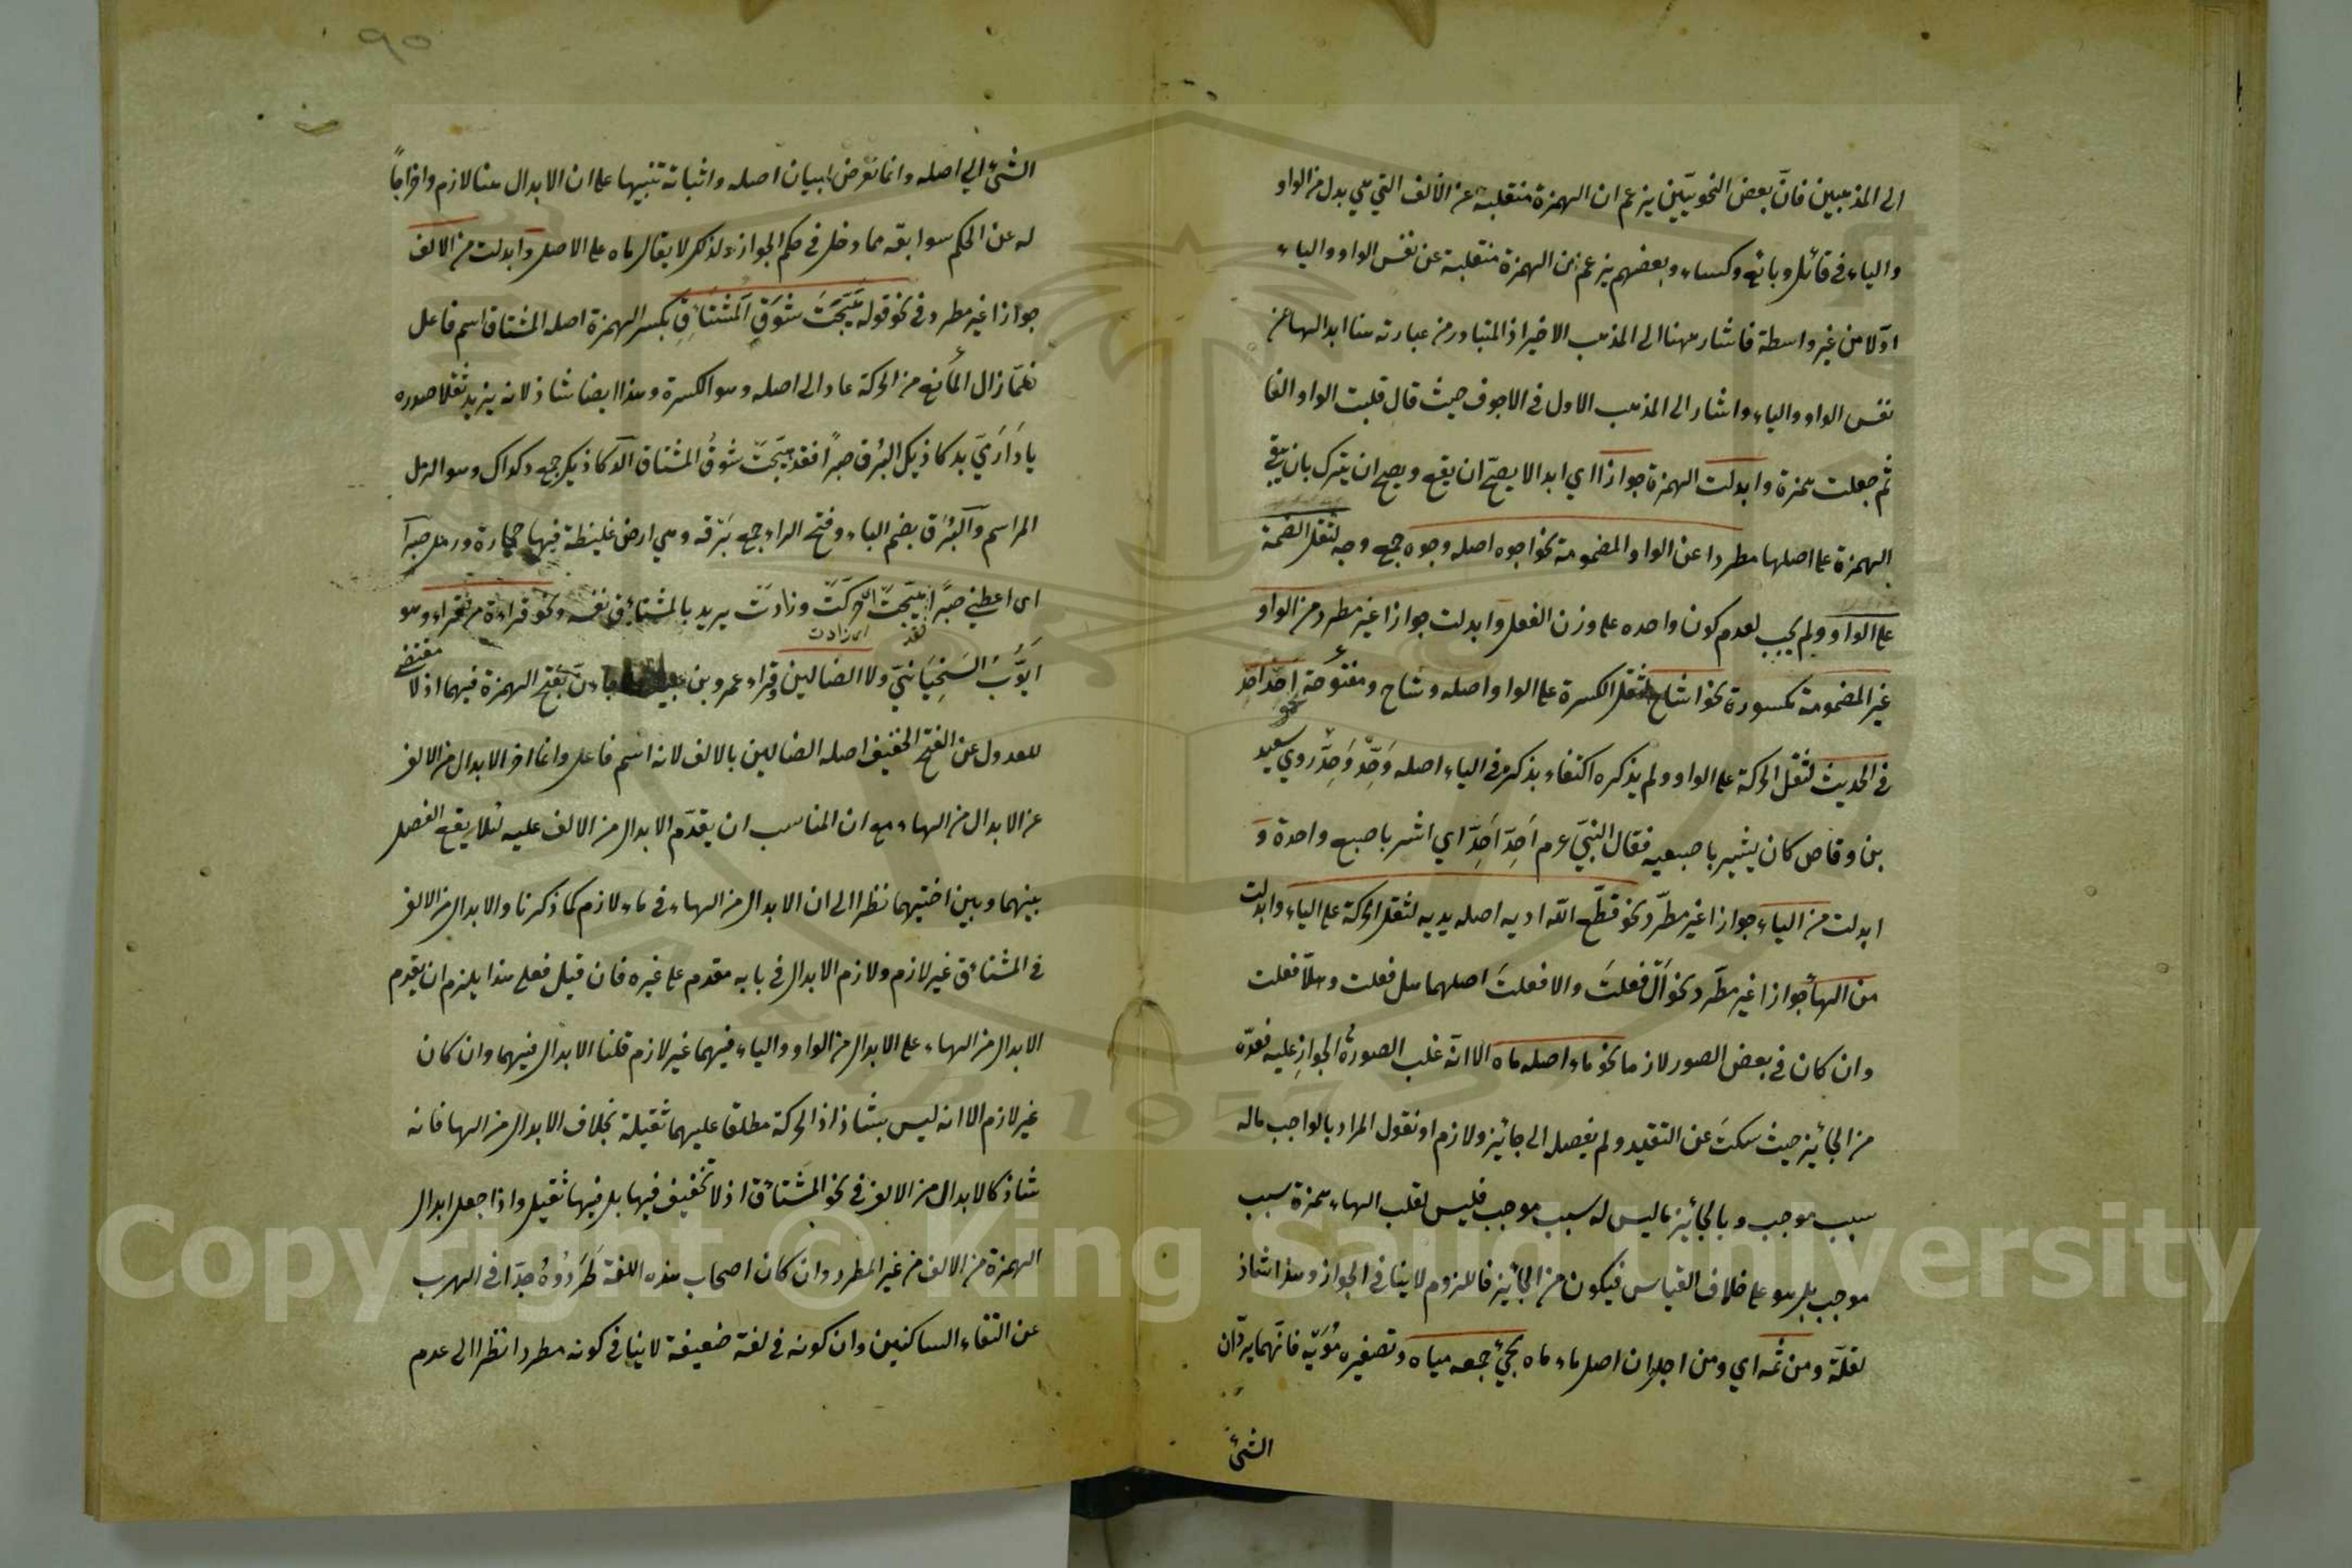 الى المذهبين فانّ بعض النحويّين يزعم ان الهمزة منقلبة عن الالف التي هي بدل من الواو
والياء في قائل وبائع وكساء وبعضهم يزعم ان الهمزة منقلبة عن نفس الواو والياء
اوّلا من غير واسطة فاشار ههنا الى المذهب الاخير اذ المتبادر من عبارته هنا ابدالها عن
نفس الواو والياء واشار الى المذهب الاول في الاجوف حيث قال قلبت الواو الفا
ثم جعلت همزة وابدلت الهمزة جوازا اي ابدالا يصحّ ان يقع ويصح ان يترك بان يبقى
الهمزة على اصلها مطردا عن الواو المضمومة نحو اجوه اصله وجوه جمع وجه لثقل الضمة
على الواو ولم يجب لعدم كون واحده على وزن الفعل وابدلت جوازا غير مطرد من الواو
غير المضمومة مكسورة نحو اشاح لثقل الكسرة على الواو اصله وشاح ومفتوحة نحو احد احد
في الحديث لثقل الحركة على الواو ولم يذكره اكتفاء بذكره في الياء اصله وَحِّد وَحِّد روي سعيد
بن وقاص كان يشير باصبعيه فقال النبيّ عم اَحِدّ اَحِدّ اي اشر باصبع واحدة وَ
ابدلت من الياء جوازا غير مطّرد نحو قطّع الله اديه اصله يديه لثقل الحركة على الياء وابدلت
من الهاء جوازا غير مطّرد نحو اَلْ فعلتَ والا فعلتَ اصلهما هل فعلت وهلّا فعلت
وان كان في بعض الصور لازما نحو ماء اصله ماه الا انّه غلب الصورة الجواز عليه فعدّه
من الجائز حيث سكتَ عن التقييد ولم يفصل الى جائز ولازم او نقول المراد بالواجب ماله
سبب موجب وبالجائز ما ليس له سبب موجب فليس لقلب الهاء همزة سبب
موجب بل هو على خلاف القياس فيكون من الجائز فاللزوم لا ينافي الجواز وهذا شاذ
لقلّة ومن ثمه اي ومن اجل ان اصل ماء ماه يجيء جمعه مياه وتصغيره مُوَيْه فانّهما يردّان
الشيء
٩٥
الشيء الى اصله وانما تعرض لبيان اصله واثباته تنبيها على ان الابدال هنا لازم واخراجاً
له عن الحكم سوابقه مما دخل في حكم الجواز ولذلك لا يقال ماه على الاصل وابدلت من الالف
جوازا غير مطرد في نحو قوله هَيَّجْتَ شَوْقَ اَلْمُشْتَأِقِ بكسر الهمزة اصله المشتاق اسم فاعل
فلمّا زال المانع من الحركة عاد الى اصله وهو الكسرة وهذا ايضا شاذ لانه يزيد ثقلا صدره
يا دَارَمَيَّ بدكاذيك البُرَق صبراً فقد هيّجتَ شوقَ المشتاق الدكاذيك جمع دكداك وهو الرمل
المراسم وَالْبُرَق بضم الباء وفتح الراء جمع بَرْقه وهي ارض غليظة فيها حجارة ورمل صبراً
اى اعطني صبرًا فقد هيّجتَ اَي حَرَّكْتَ وزادت يريد بالمشتأق نفسه ونحو قراءة من قراء وهو
اى زادت
اَيّوُبُ السَخِيَانيّ ولا الضالين وقراء عمرو بن عبيد ولا جاءن بفتح الهمزة فيهما اذ لا مقتضى
للعدول عن الفتح الخفيف اصله الضالين بالالف لانه اسم فاعل وانما اخر الابدال من الالف
عن الابدال من الهاء مع ان المناسب ان يقدّم الابدال من الالف عليه لئلا يقع الفصل
بينهما وبين اختيهما نظرا الى ان الابدال من الهاء في ماء لازم كما ذكرنا والابدال من الالف
في المشتأق غير لازم ولازم الابدال في بابه مقدم على غيره فان قيل فعلى هذا يلزم ان يقدم
الابدال من الهاء على الابدال من الواو والياء فيهما غير لازم قلنا الابدال فيهما وان كان
غير لازم الا انه ليس بشاذ اذ الحركة مطلقا عليهما ثقيلة بخلاف الابدال من الهاء فانه
شاذ كالابدال من الالف في نحو المشتأق اذ لا تخفيف فيها بل فيها ثقيل واذا جعل ابدال
الهمزة من الالف من غير المطرد وان كان اصحاب هذه اللغة طَرَدُوهُ جدّا في الهرب
عن التقاء الساكنين وان كونه في لغة ضعيفة لا ينافي كونه مطردا نظرا الى عدم
Copyright © King Saud University
1957